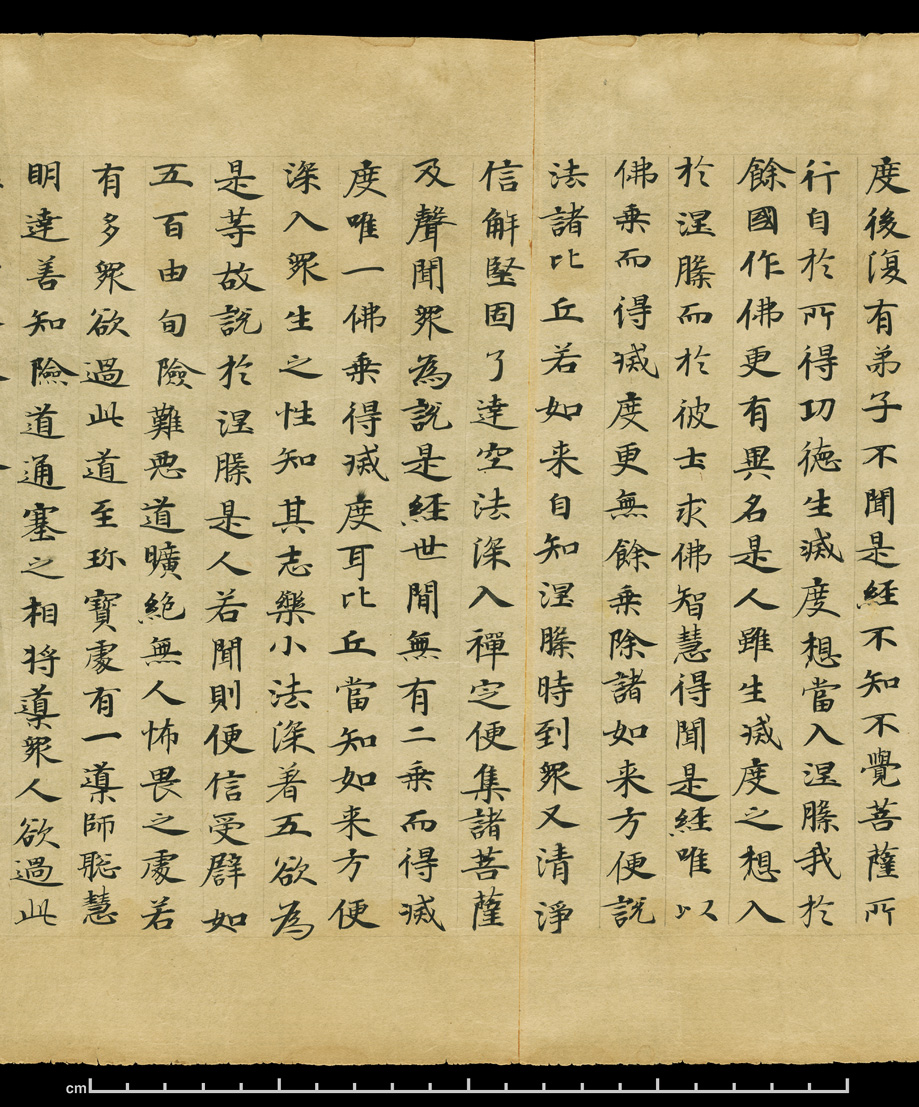 度後復有弟子不聞是經不知不覺菩薩所
行自於所得功德生滅度想當入涅槃我於
餘國作佛更有異名是人雖生滅度之想入
於涅槃而於彼土求佛智慧得聞是經唯以
佛乘而得滅度更無餘乘除諸如来方便說
法諸比丘若如来自知涅槃時到眾又清淨
信解堅固了達空法深入禪定便集諸菩薩
及聲聞眾為說是經世間無有二乘而得滅
度唯一佛乘得滅度耳比丘當知如来方便
深入眾生之性知其志樂小法深著五欲為
是等故說於涅槃是人若聞則便信受辟如
五百由旬險難惡道曠絕無人怖畏之處若
有多眾欲過此道至珎寶處有一導師聡慧
明達善知險道通塞之相將導眾人欲過此
cm